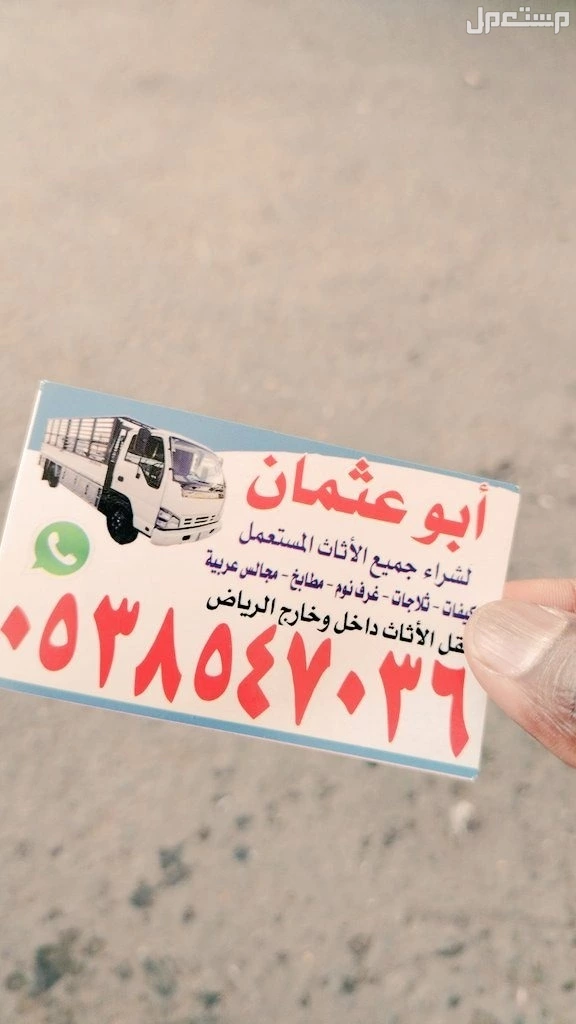 مستعمل
أبو عثمان
لشراء جميع الأثاث المستعمل
- ثلاجات - غرف نوم - مطابخ - مجالس عربية
الأثاث داخل وخارج الرياض
٠٥٣٨٥٤٧٠٣٦